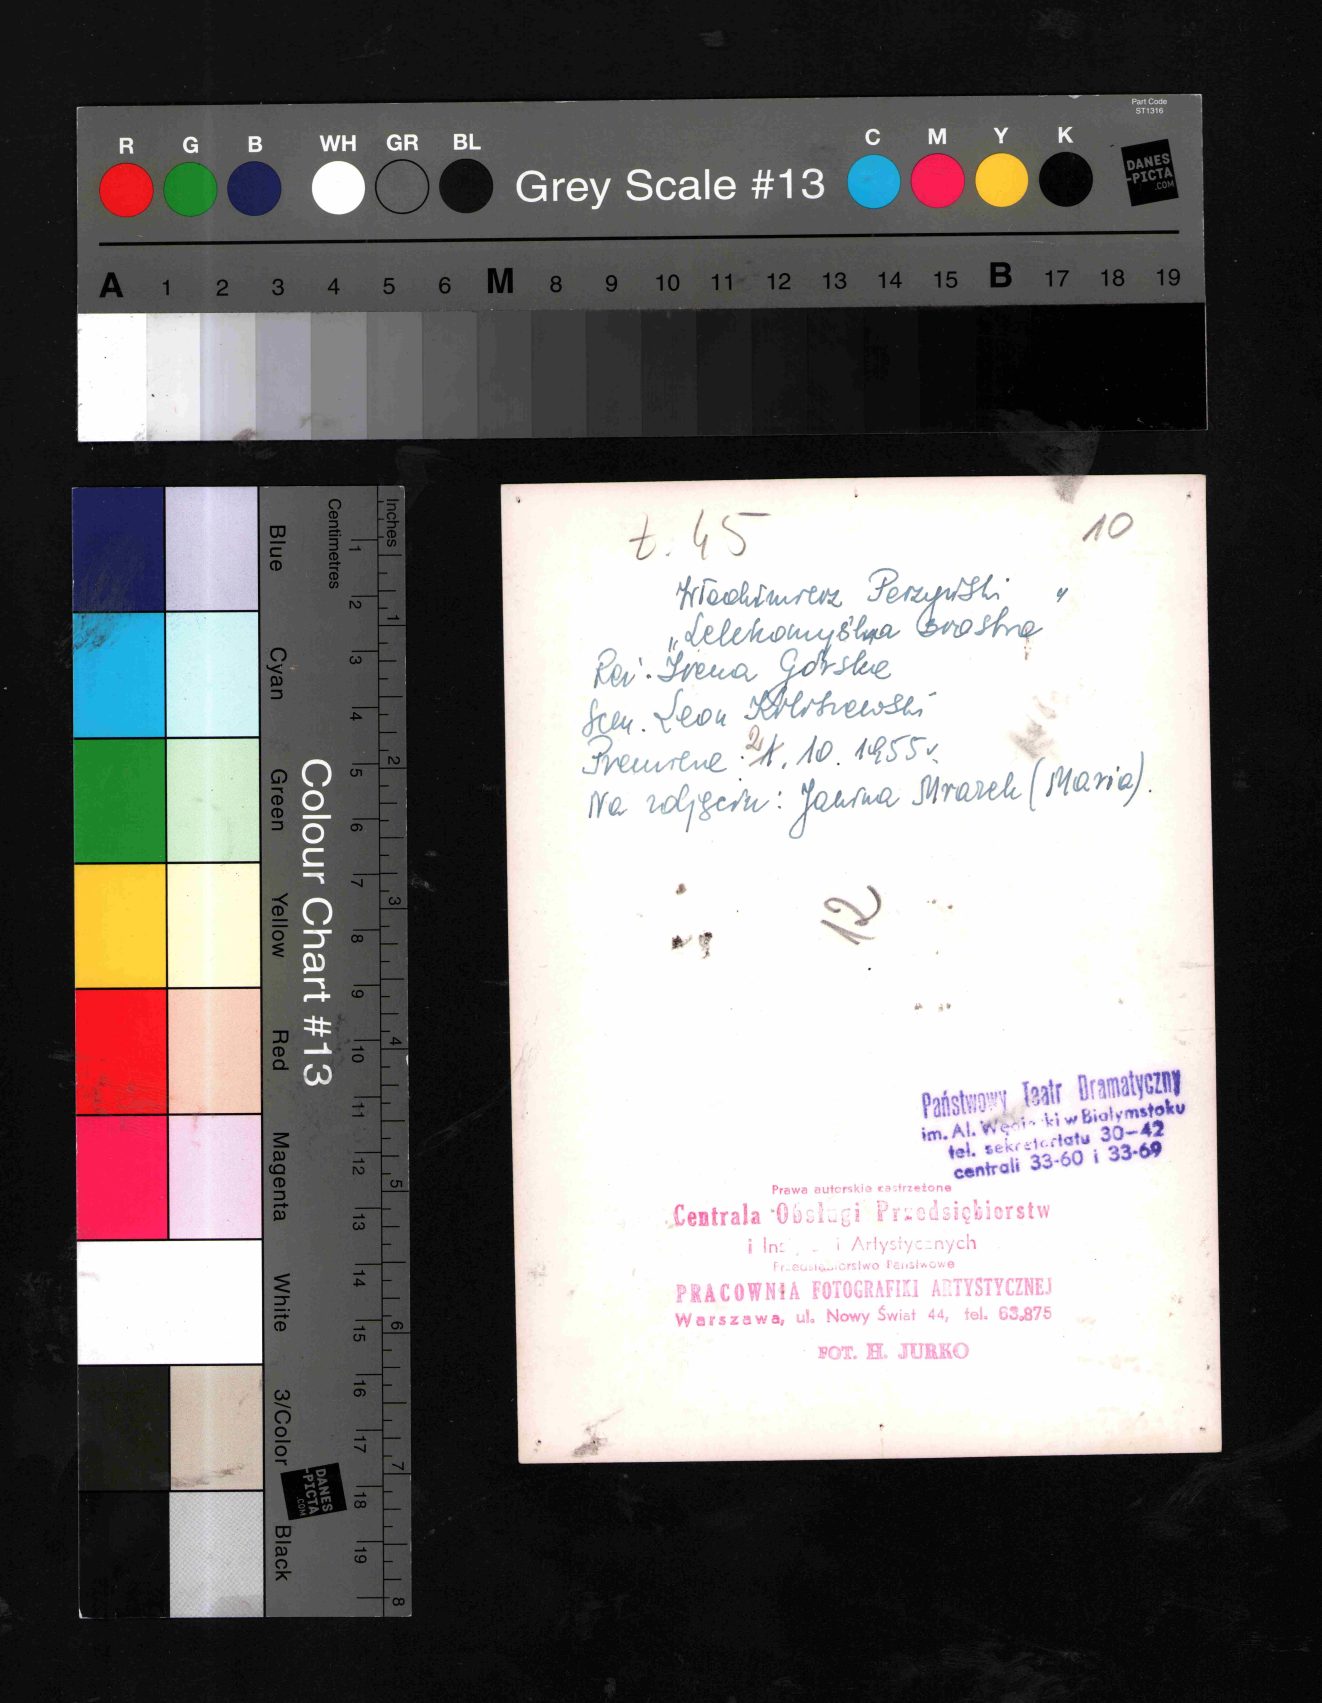 Part Code
ST1316
R G B WH GR BL Grey Scale #13 C M Y K
DANES
-PICTA
.COM
A 1 2 3 4 5 6 M 8 9 10 11 12 13 14 15 B 17 18 19
Colour Chart #13
Blue
Cyan
Green
Yellow
Red
Magenta
White
3/Color
Black
Centimetres
1 2 3 4 5 6 7 8 9 10 11 12 13 14 15 16 17 18 19
Inches
1 2 3 4 5 6 7 8
DANES
-PICTA
.COM
t. 45
10
Włodzimierz Perzyński
„Lekkomyślna siostra"
Reż. Irena Górska
Scen. Leon
Premiera 21. 10. 1955 r.
Na zdjęciu: Janina Mrazek (Maria).
12
Państwowy Teatr Dramatyczny
im. Al. w Białymstoku
tel. sekretariatu 30-42
centrali 33-60 i 33-69
Prawa autorskie zastrzeżone
Centrala Obsługi Przedsiębiorstw
i Artystycznych
Przedsiębiorstwo Państwowe
PRACOWNIA FOTOGRAFIKI ARTYSTYCZNEJ
Warszawa, ul. Nowy Świat 44, tel. 63.875
FOT. H. JURKO